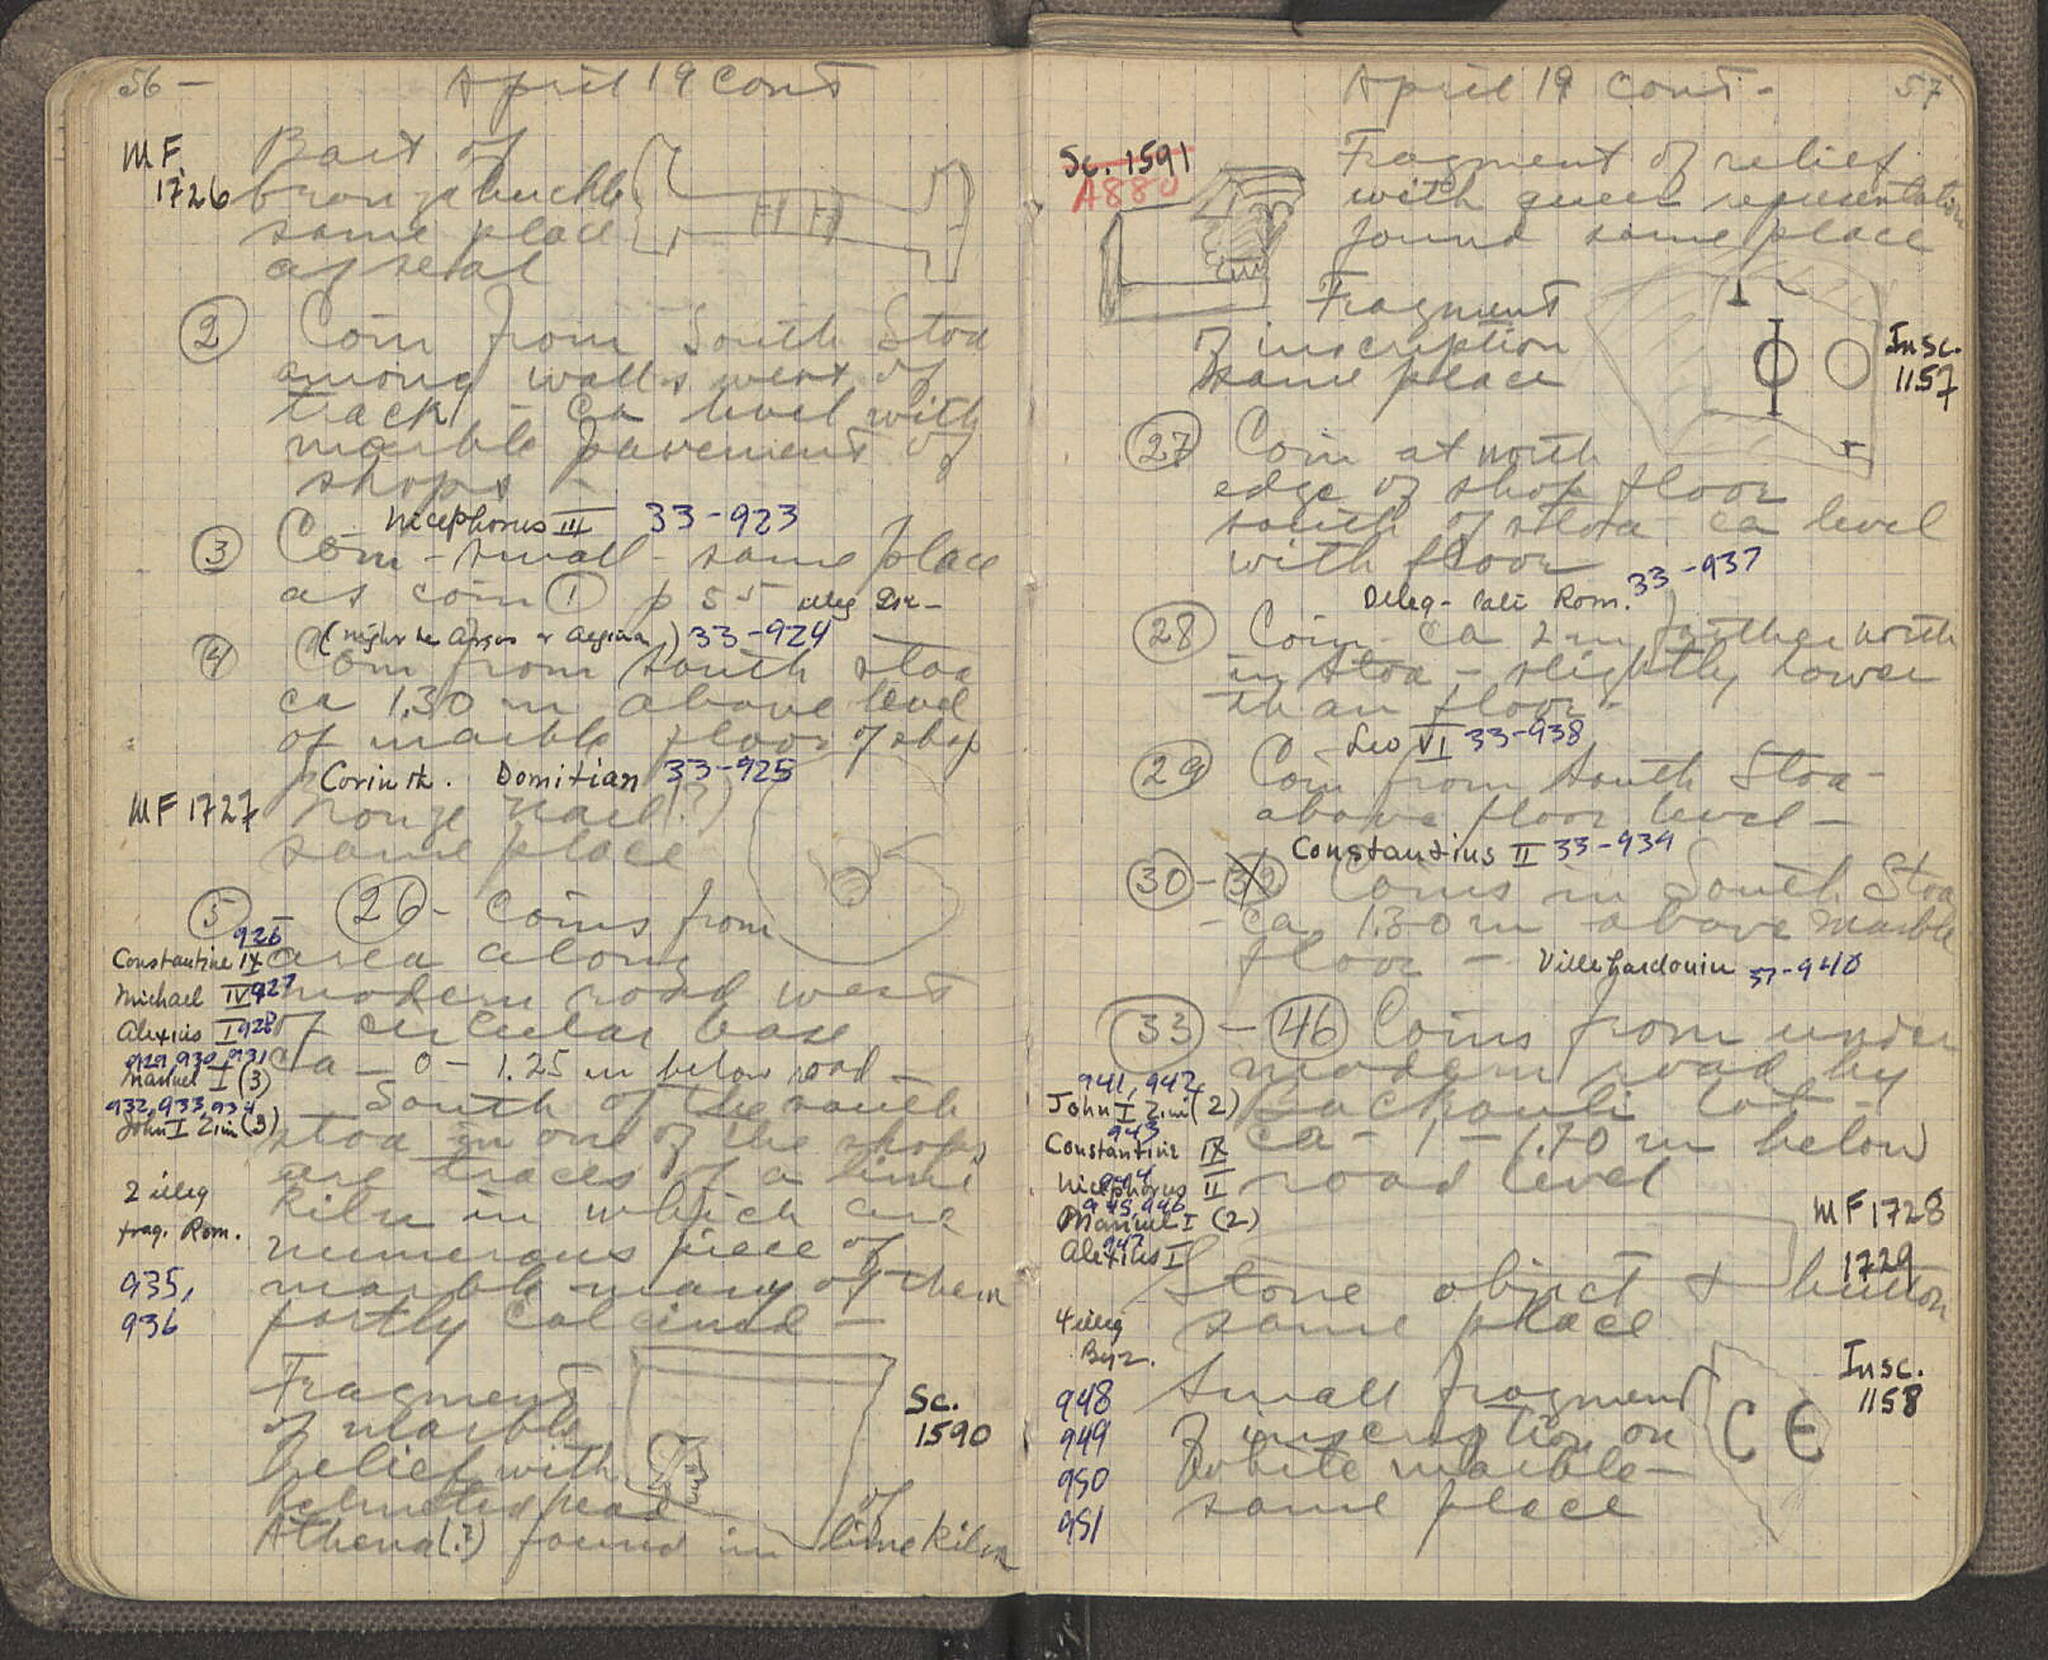 56 –
April 19 Cont
MF.
1726
Part of
bronze buckle
same place
as seal
2 Coin from South Stoa
among walls west of
track – ca level with
marble pavement of
shops –
Nicephorus III 33-923
3 Coin – small – same place
as coin 1 p 55 illeg
(might be Argos or Aegina) 33-924
4 Coin from south stoa
ca 1.30 m above level
of marble floor of shop
Corinth. Domitian 33-925
MF 1727
Bronze nail (?)
same place
5 26 – Coins from
area along
modern road west
of circular base
Ca – 0 – 1.25 m below road –
926
Constantine IX
Michael IV 927
Alexius I 928
929, 930, 931
Manuel I (3)
932, 933, 934
John I Zim (3)
2 illeg
frag. Rom.
935,
936
South of the south
stoa in one of the shops
are traces of a lime
kiln in which are
numerous piece of
marble many of them
partly calcined –
Fragment
of marble
relief with
helmeted head
of
Athena (?) found in lime kiln
Sc.
1590
April 19 cont –
57
Sc. 1591
A880
Fragment of relief
with queer representation
found same place
Fragment
of inscription
same place
Φ Ο
Insc.
1157
27 Coin at north
edge of shop floor
south of stoa – ca level
with floor
Illeg – late Rom. 33-937
28 Coin – ca 2 m further north
in stoa – slightly lower
than floor –
Leo VI 33-938
29 Coin from South Stoa –
above floor level –
Constantius II 33-939
30 – 32 Coins in South Stoa
– ca 1.30 m above marble
floor –
Villehardouin 33-940
33 – 46 Coins from under
modern road by
lot –
ca – 1 – 1.70 m below
road level
941, 942
John I Zim (2)
943
Constantine IX
944
Nicephorus II
945, 946
Manuel I (2)
947
Alexius I
4 illeg
Byz.
948
949
950
951
MF 1728
1729
Stone object & button
same place
Small fragment
of inscription on
white marble –
same place
C E
Insc.
1158